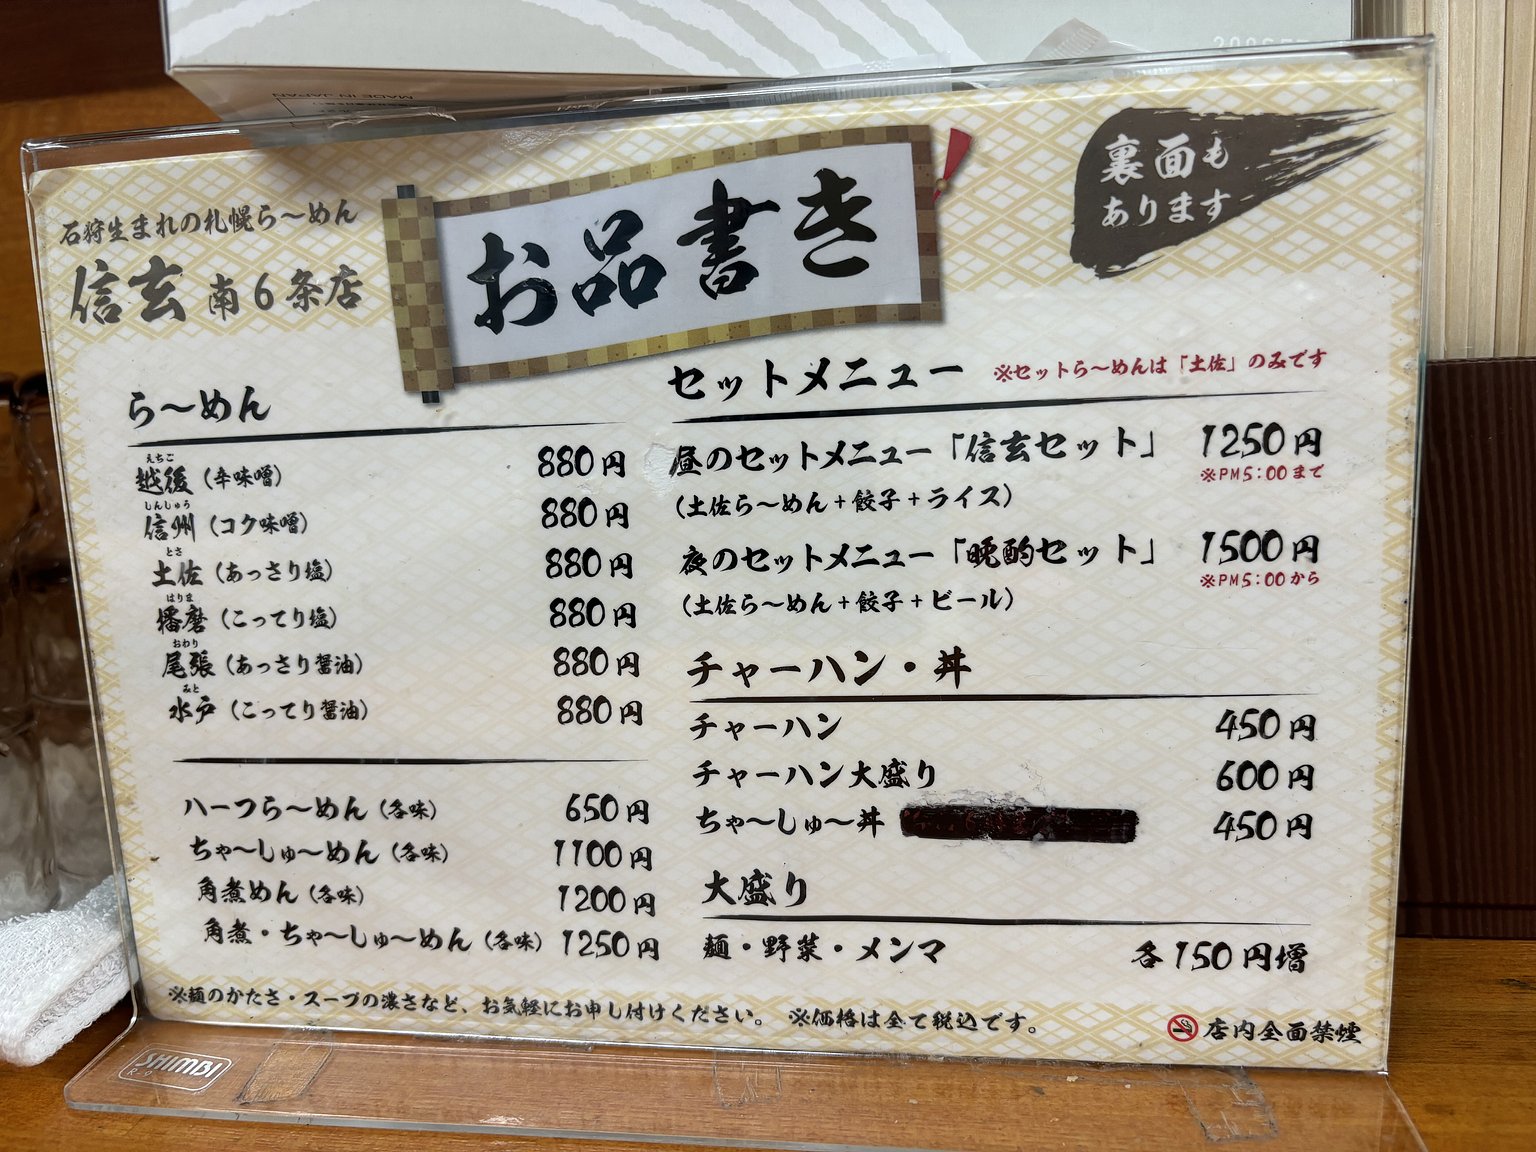 MADE IN JAPAN
石狩生まれの札幌ら〜めん
信玄 南6条店
お品書き
裏面も
あります
ら〜めん
えちご
越後（辛味噌） 880円
しんしゅう
信州（コク味噌） 880円
とさ
土佐（あっさり塩） 880円
はりま
播磨（こってり塩） 880円
おわり
尾張（あっさり醤油） 880円
みと
水戸（こってり醤油） 880円
ハーフら〜めん（各味） 650円
ちゃ〜しゅ〜めん（各味） 1100円
角煮めん（各味） 1200円
角煮・ちゃ〜しゅ〜めん（各味） 1250円
セットメニュー ※セットら〜めんは「土佐」のみです
昼のセットメニュー「信玄セット」 1250円
※PM5:00まで
（土佐ら〜めん+餃子+ライス）
夜のセットメニュー「晩酌セット」 1500円
※PM5:00から
（土佐ら〜めん+餃子+ビール）
チャーハン・丼
チャーハン 450円
チャーハン大盛り 600円
ちゃ〜しゅ〜丼 450円
大盛り
麺・野菜・メンマ 各150円増
※麺のかたさ・スープの濃さなど、お気軽にお申し付けください。 ※価格は全て税込です。
店内全面禁煙
SHIMBI